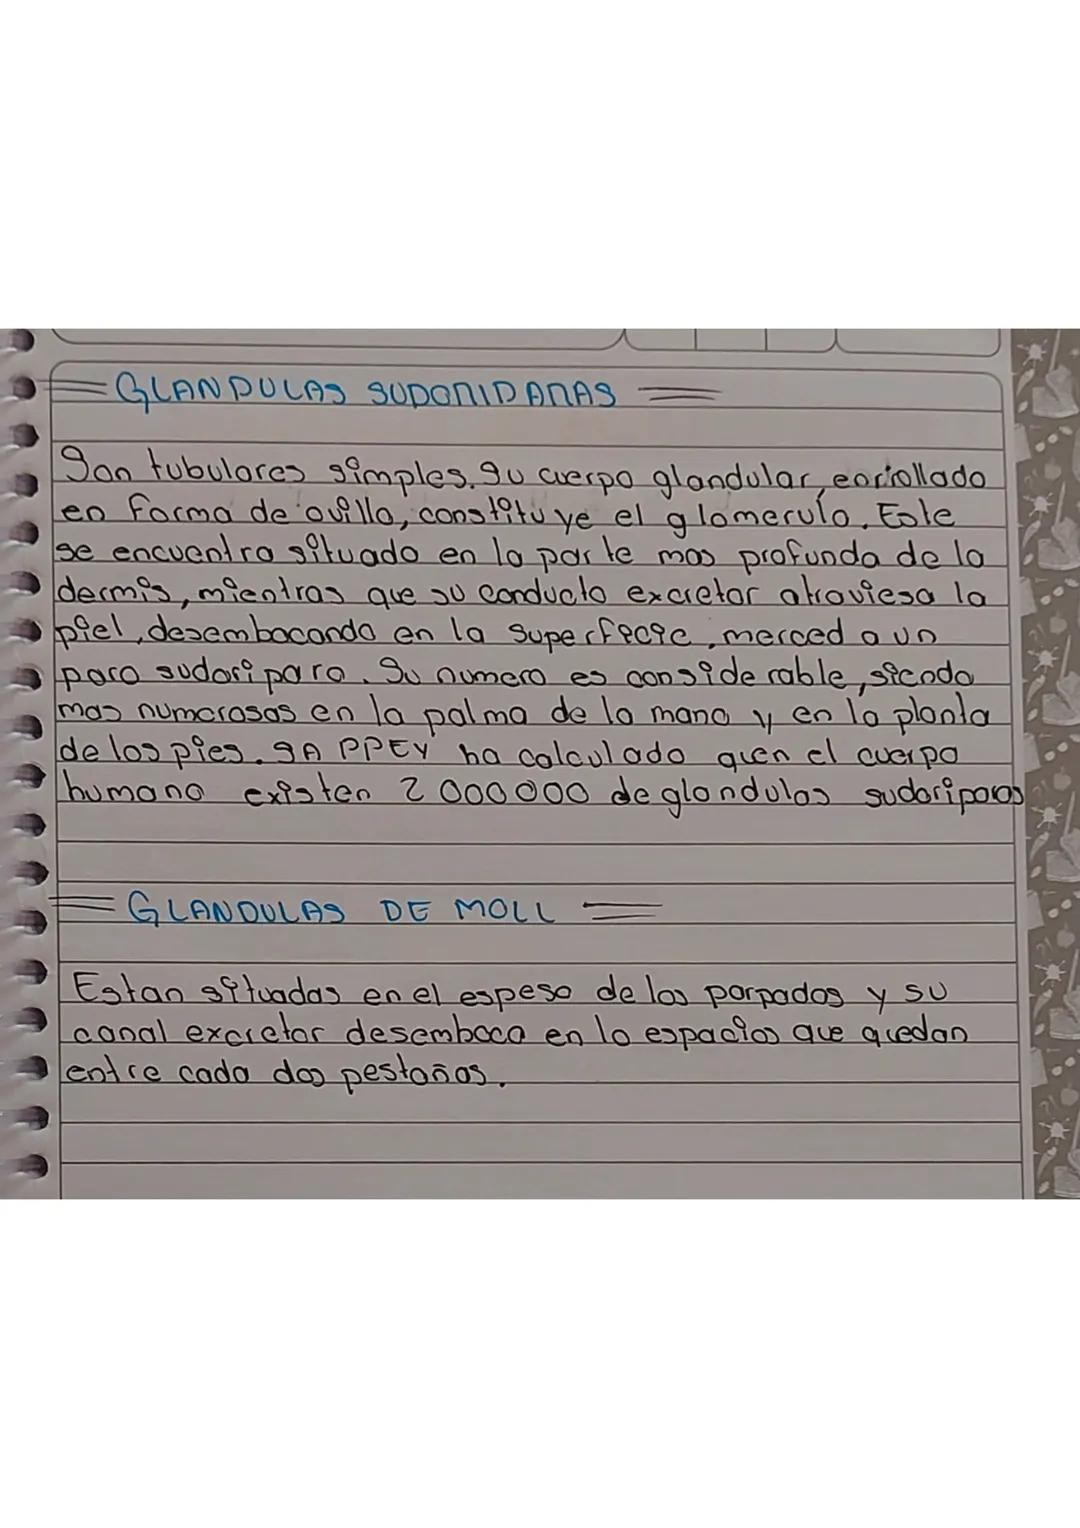 GLANDULAS SUDORIPARAS
Son tubulares simples. Su cuerpo glandular, enrrollado
en forma de ovillo, constituye el glomerulo. Este
se encuentra situado en la parte mas profunda de la
dermis, mientras que su conducto excretor atraviesa la
piel, desembocando en la superfecie, merced a un
poro sudoriparo. Su numero es considerable, siendo
mas numerosas en la palma de la mano y en la planta
de los pies. SAPPEY ha calculado quen el cuerpo
humano existen 2 000000 de glandulas sudoriparas
GLANDULAS DE MOLL
Estan situadas en el espeso de los parpados y su
canal excretor desemboca en lo espacios que quedan
entre cada dos pestañas.